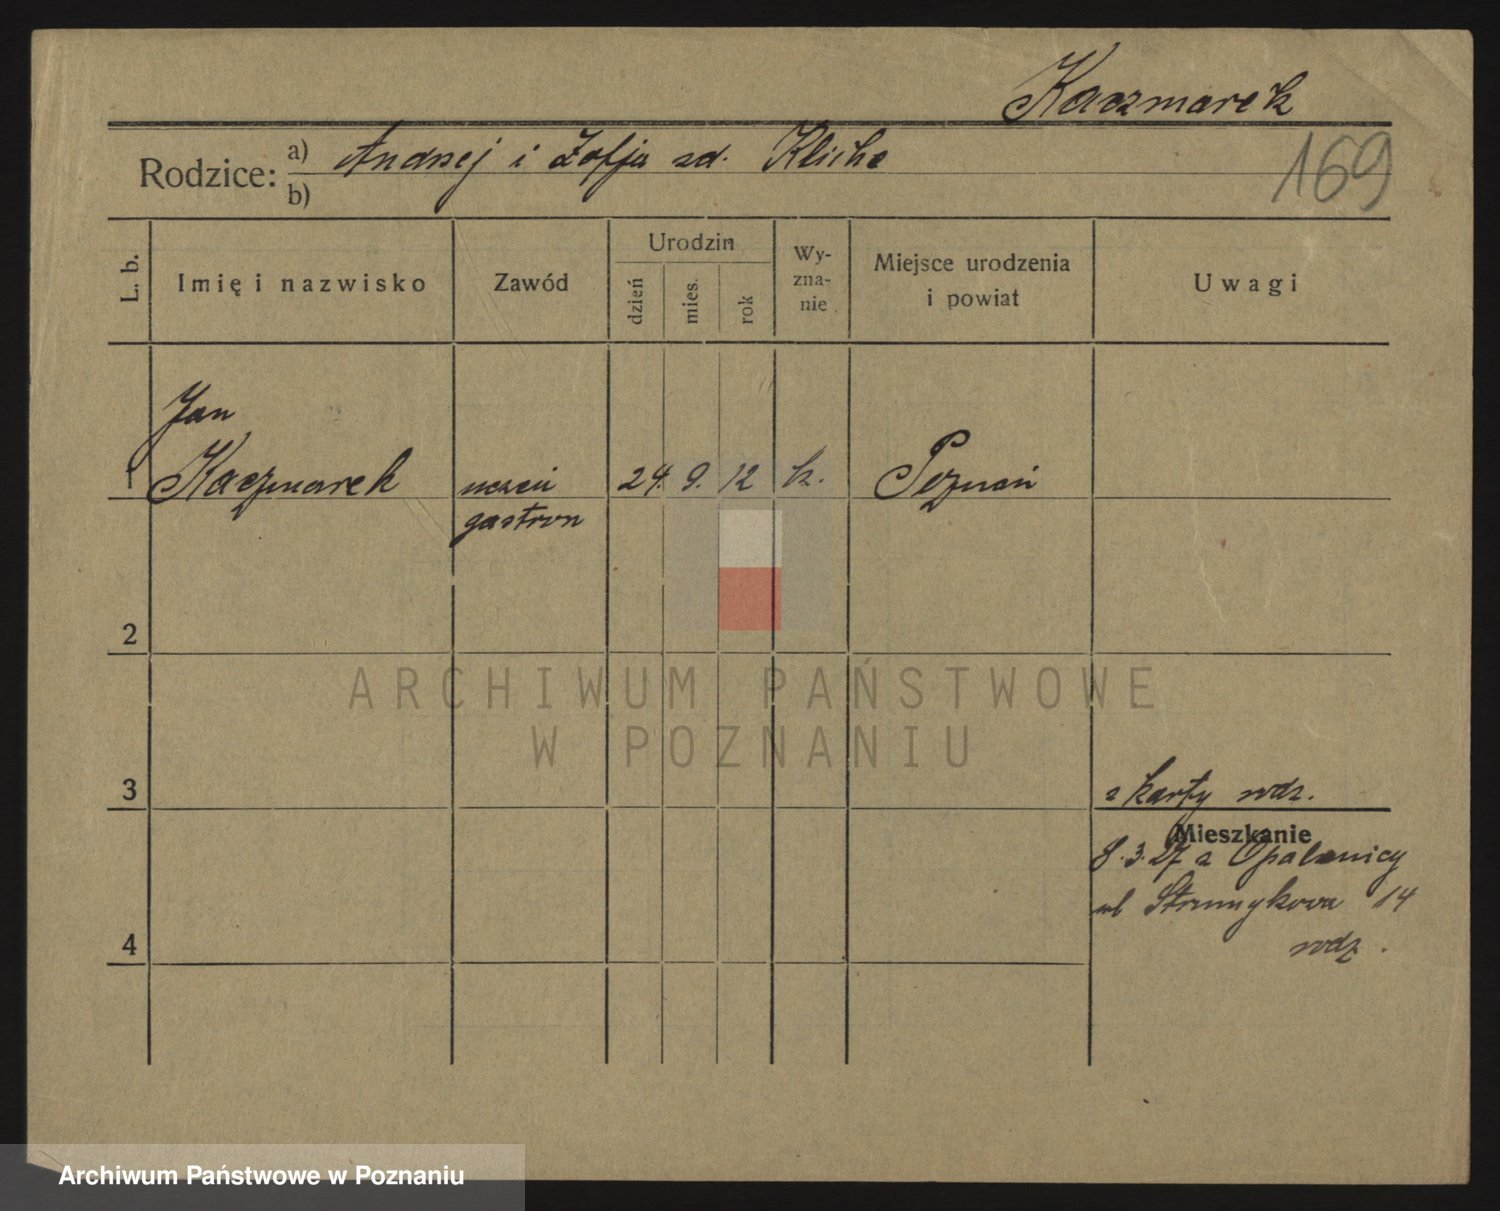 Kaczmarek
169
Rodzice: a) Andrzej i Zofja zd. Kliche
b)
L. b. Imię i nazwisko Zawód Urodzin dzień mies. rok Wyzna-nie Miejsce urodzenia i powiat Uwagi
Jan
1 Kaczmarek uczeń 24. 9. 12 k. Poznań
gastron
2
ARCHIWUM PAŃSTWOWE
W POZNANIU
3 z karty rodz.
Mieszkanie
8.3.27 z Opalenicy
ul Strumykowa 14
rodz.
4
Archiwum Państwowe w Poznaniu